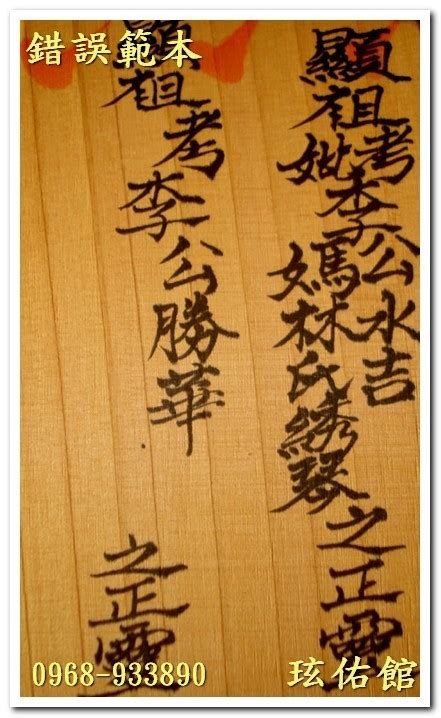 錯誤範本
顯祖考妣李公水吉
媽林氏綉琴
之正靈
顯祖考李公勝華
之正靈
0968-933890
玹佑館